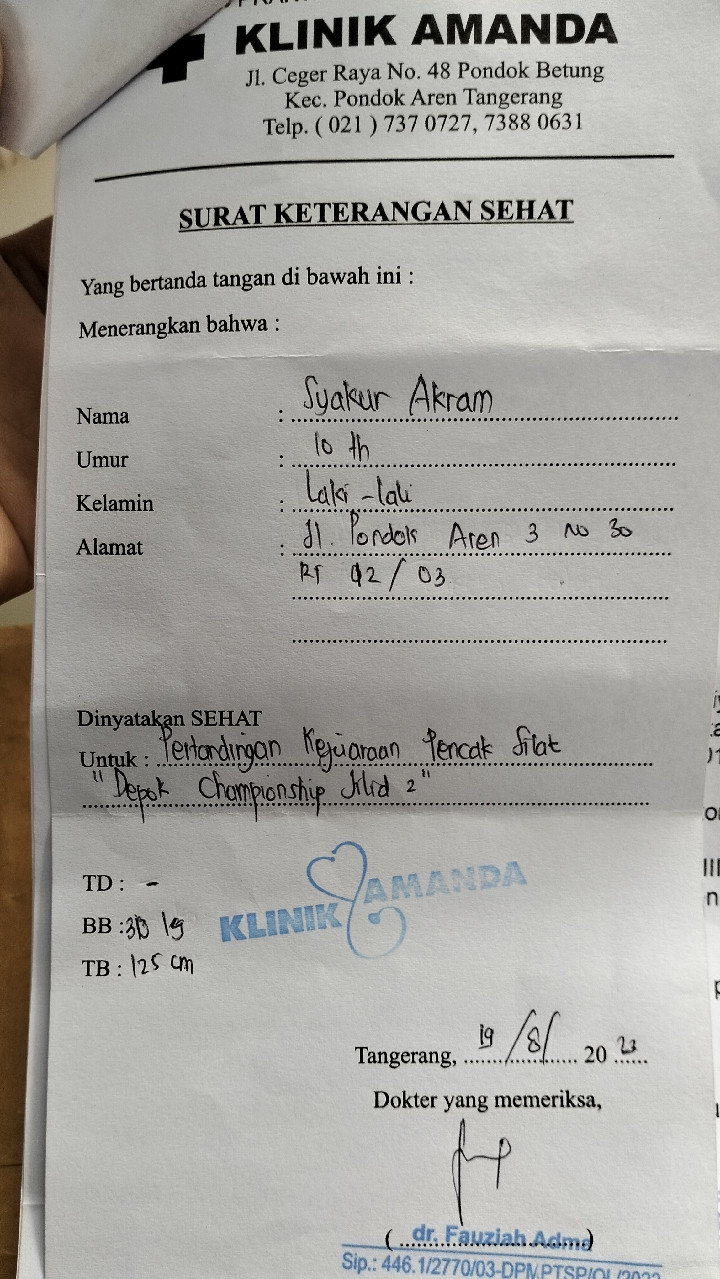 KLINIK AMANDA
Jl. Ceger Raya No. 48 Pondok Betung
Kec. Pondok Aren Tangerang
Telp. ( 021 ) 737 0727, 7388 0631
SURAT KETERANGAN SEHAT
Yang bertanda tangan di bawah ini :
Menerangkan bahwa :
Nama : Syakur Akram
Umur : 10 th
Kelamin : Laki-laki
Alamat : Jl. Pondok Aren 3 no 30
RT 02/03
Dinyatakan SEHAT
Untuk : Pertandingan Kejuaraan Pencak Silat
"Depok Championship 2"
TD : -
BB : kg
TB : 125 cm
KLINIK AMANDA
Tangerang, 19/8/ 2023
Dokter yang memeriksa,
( dr. Fauziah Adma )
Sip.: 446.1/2770/03-DPMPTSP/OL/2022